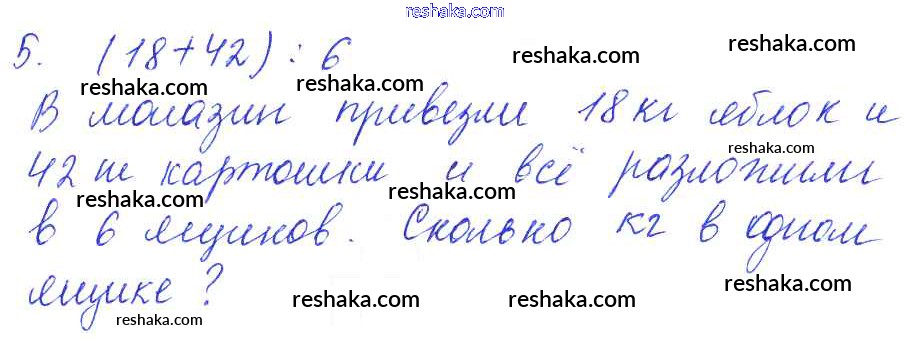 reshaka.com
5. (18+42) : 6
reshaka.com reshaka.com
reshaka.com reshaka.com
В магазин привезли 18 кг яблок и
reshaka.com reshaka.com
42 кг картошки и всё разложили
reshaka.com reshaka.com
в 6 ящиков. Сколько кг в одном
reshaka.com reshaka.com
ящике?
reshaka.com reshaka.com reshaka.com
reshaka.com